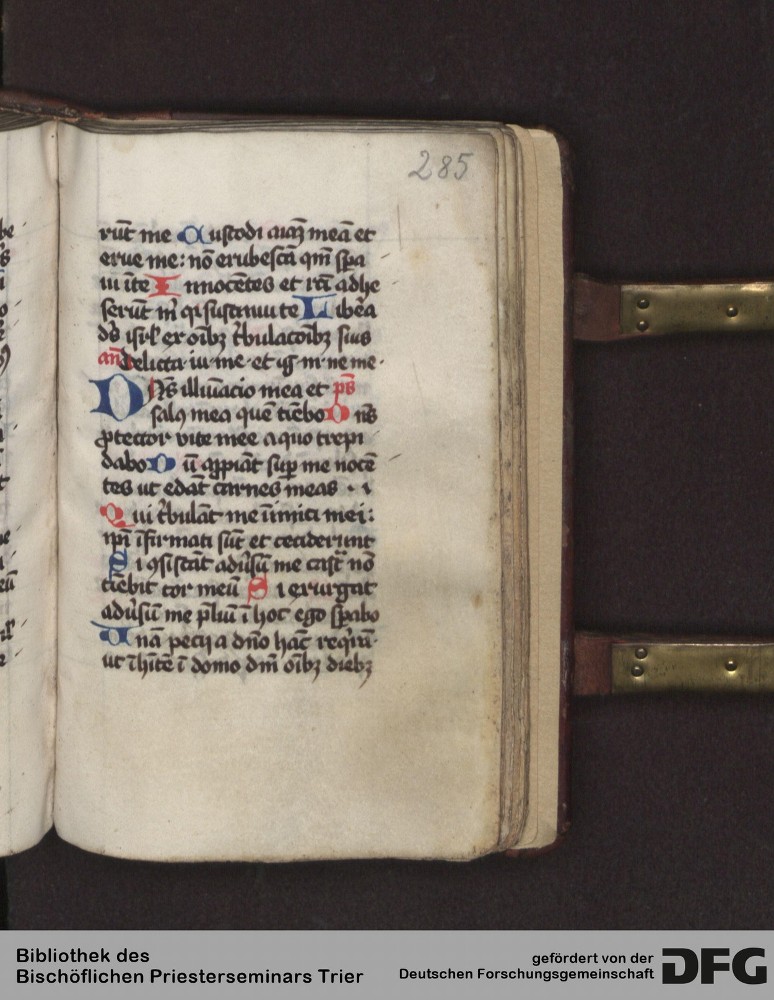 285
rūt me Custodi aīaȝ meā et
erue me: nō erubescā qm̄ spa
ui ī te Innocētes et rc̄i adhe
serūt m̄ qi sustinui te Libēa
ds̄ isrl' ex oībȝ t̄bulacōībȝ suis
an̄ Delicta iuuē et ig m ne me
Dn̄s illuīacio mea et ps̄
salꝯ mea quē timēbo Dn̄s
ꝓtector vite mee a quo trepi
dabo Dū apꝓpiāt sup̄ me nocē
tes ut edāt carnes meas
Qui t̄bulāt me inīmici mei:
ip̄i īfirmati sūt et ceciderunt
Si ꝯsistāt adūsū me cast̄ nō
timēbit cor meū Si exurgat
adūsū me p̄liū ī hoc ego spabo
Unā pecij a dn̄o hāc reqirā
ut īhītē ī domo dn̄i oībȝ diebȝ
Bibliothek des
Bischöflichen Priesterseminars Trier
gefördert von der
Deutschen Forschungsgemeinschaft
DFG